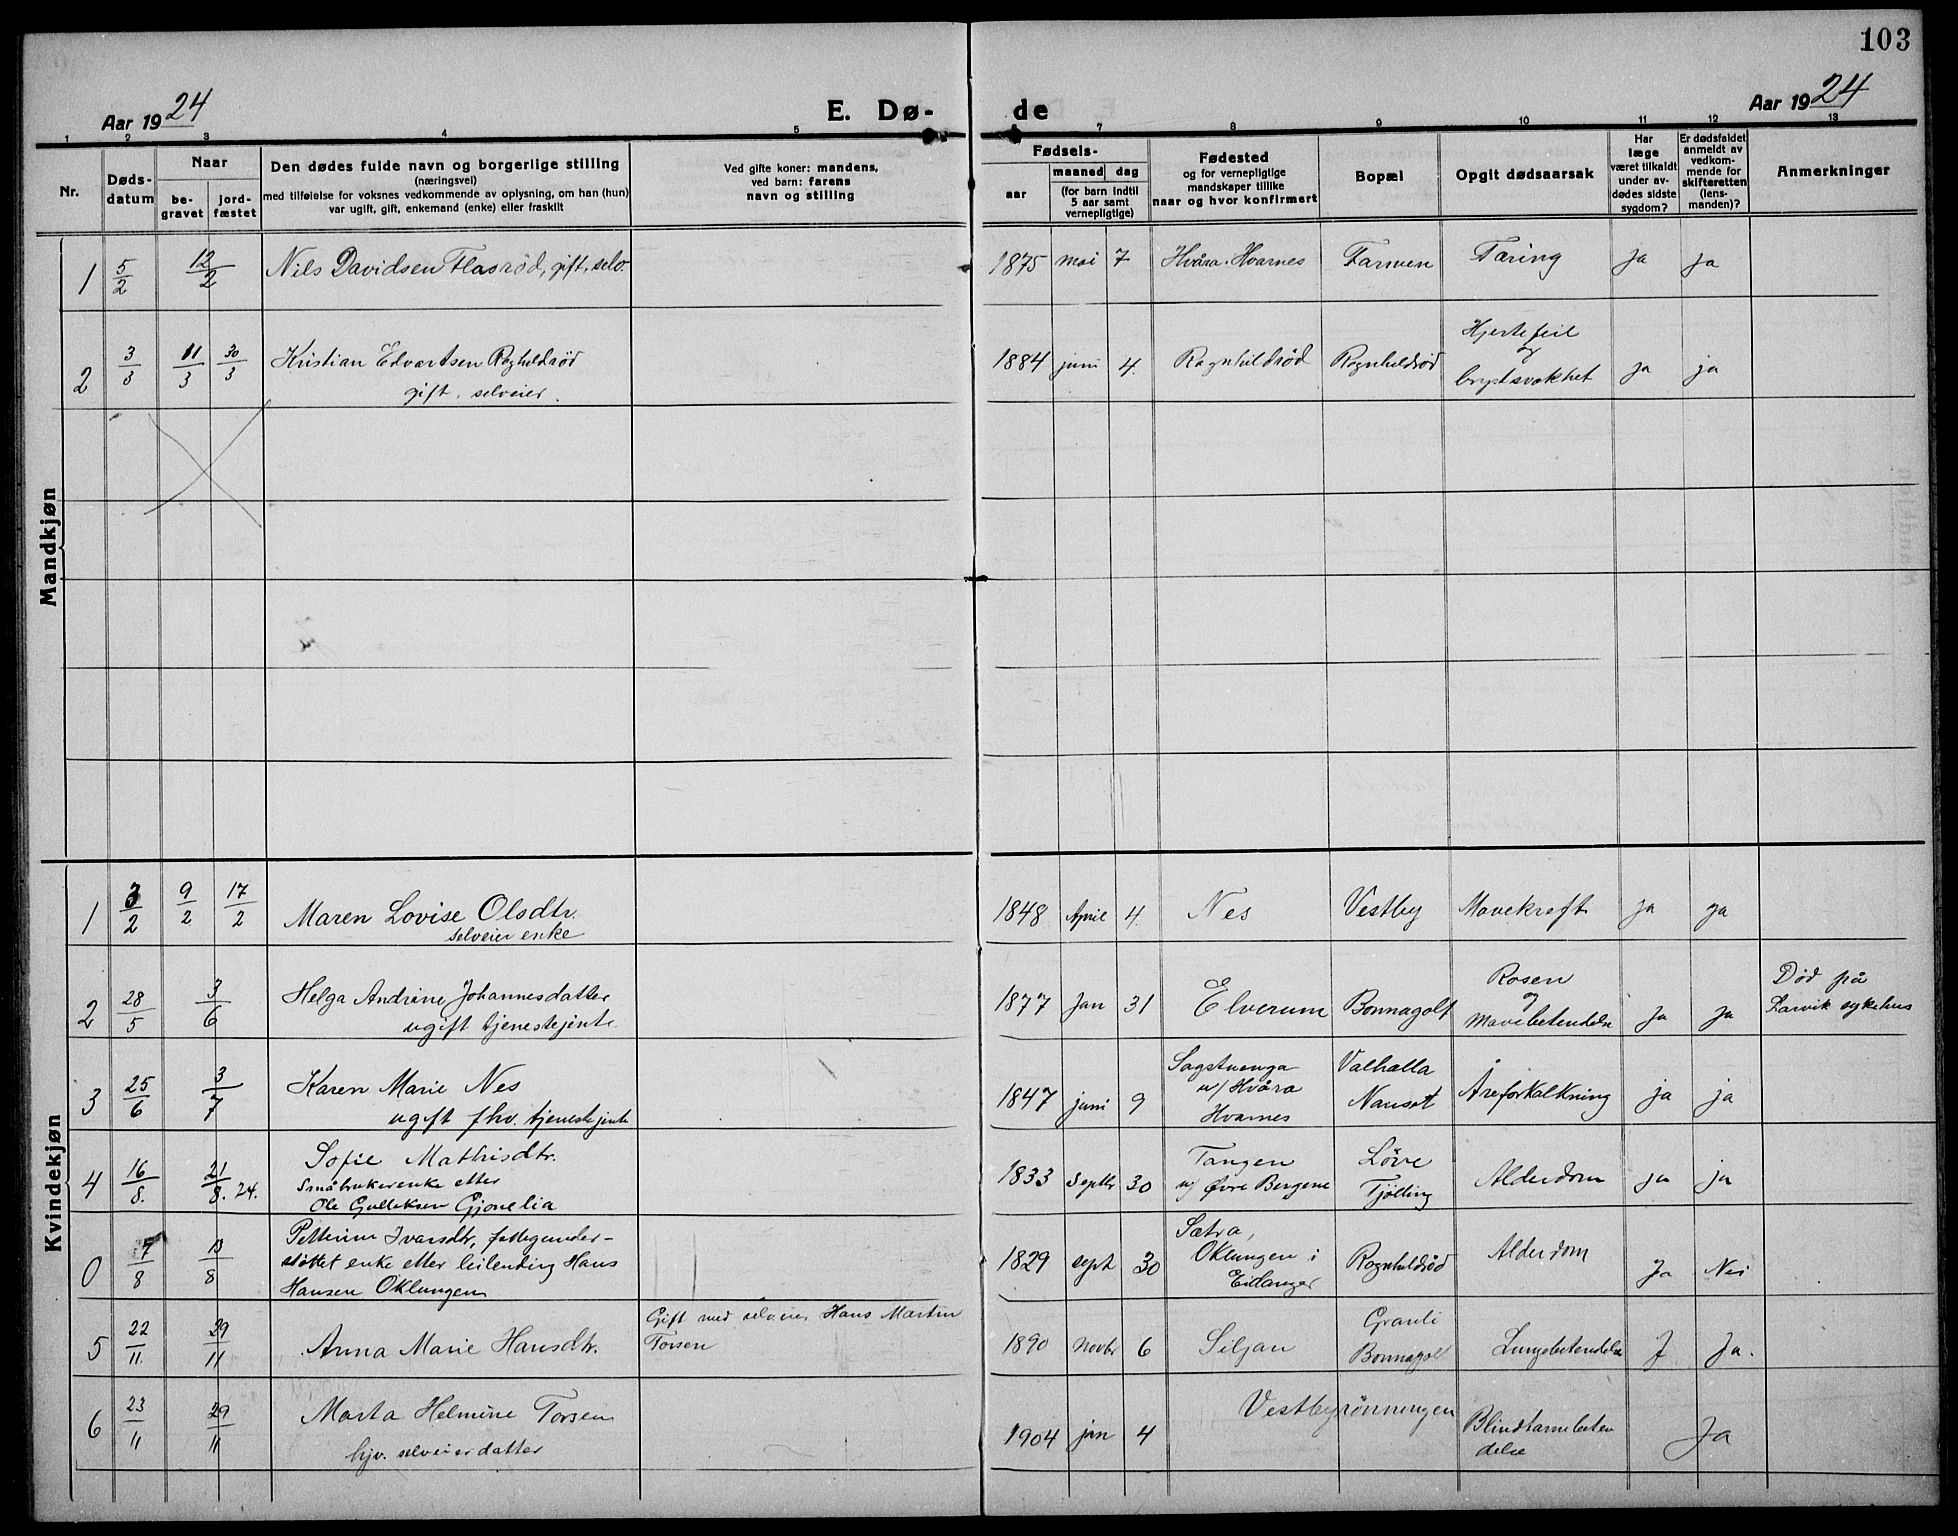 103
Aar 1924
E. Dø-
de
Aar 1924
1 2 3 4 5 7 8 9 10 11 12 13
Nr.
Døds-
datum
Naar
be-
gravet
jord-
fæstet
Den dødes fulde navn og borgerlige stilling
(næringsvei)
med tilføielse for voksnes vedkommende av oplysning, om han (hun)
var ugift, gift, enkemand (enke) eller fraskilt
Ved gifte koner: mandens,
ved barn: farens
navn og stilling
Fødsels-
aar
maaned dag
(for barn indtil
5 aar samt
vernepligtige)
Fødested
og for vernepligtige
mandskaper tillike
naar og hvor konfirmert
Bopæl
Opgit dødsaarsak
Har
læge
været tilkaldt
under av-
dødes sidste
sygdom?
Er dødsfaldet
anmeldt av
vedkom-
mende for
skifteretten
(lens-
manden)?
Anmerkninger
Mandkjøn
1 5/2 12/2 Nils Davidsen Flasrød, gift, selv. 1875 mai 7 Hvåra. Hvarnes Farmen Tæring ja ja
2 3/3 11/3 30/3 Kristian Edvartsen Ragnhildsrød
gift. selveier.
1884 juni 4. Ragnhildrød Ragnhildsrød
Hjertefeil
og
brystsvakhet
ja ja
Kvindekjøn
1 3/2 9/2 17/2 Maren Lovise Olsdtr.
selveier enke
1848 April 4. Nes Vestby Mavekreft ja ja
2 28/5 3/6 Helga Andrine Johannesdatter
ugift tjenestejente
1877 Jan 31 Elverum Bonnagolt
Rosen
og
Mavebetendelse
ja ja
Død på
Larvik sykehus
3 25/6 3/7 Karen Marie Nes
ugift fhv. tjenestejente
1847 juni 9
Sagstuenga
u/ Hvåra
Hvarnes
Valhalla
Nanset
Åreforkalkning ja ja
4 16/8. 21/8. 24. Sofie Mathisdtr.
Småbrukerenke etter
Ole Gulleksen Gjonelia
1833 Septbr 30
Tangen
u/ Øvre Bergene
Löve
Tjölling
Alderdom ja ja
0 7/8 13/8 Petterine Ivarsdtr, fattigunder-
støttet enke etter leilending Hans
Hansen Oklungen
1829 sept 30
Sætra,
Oklungen i
Eidanger
Ragnhildsrød Alderdom Ja Nei
5 22/11. 29/11 Anna Marie Hansdtr.
Gift med selveier Hans Martin
Torsen
1890 Novbr 6 Siljan
Granli
Bonnagolt
Lungebetendelse J Ja.
6 23/11 29/11 Marta Helmine Torsen
hjv. selveierdatter
1904 jan 4 Vestbyrönningen
Blindtarmbeten
delse
Ja